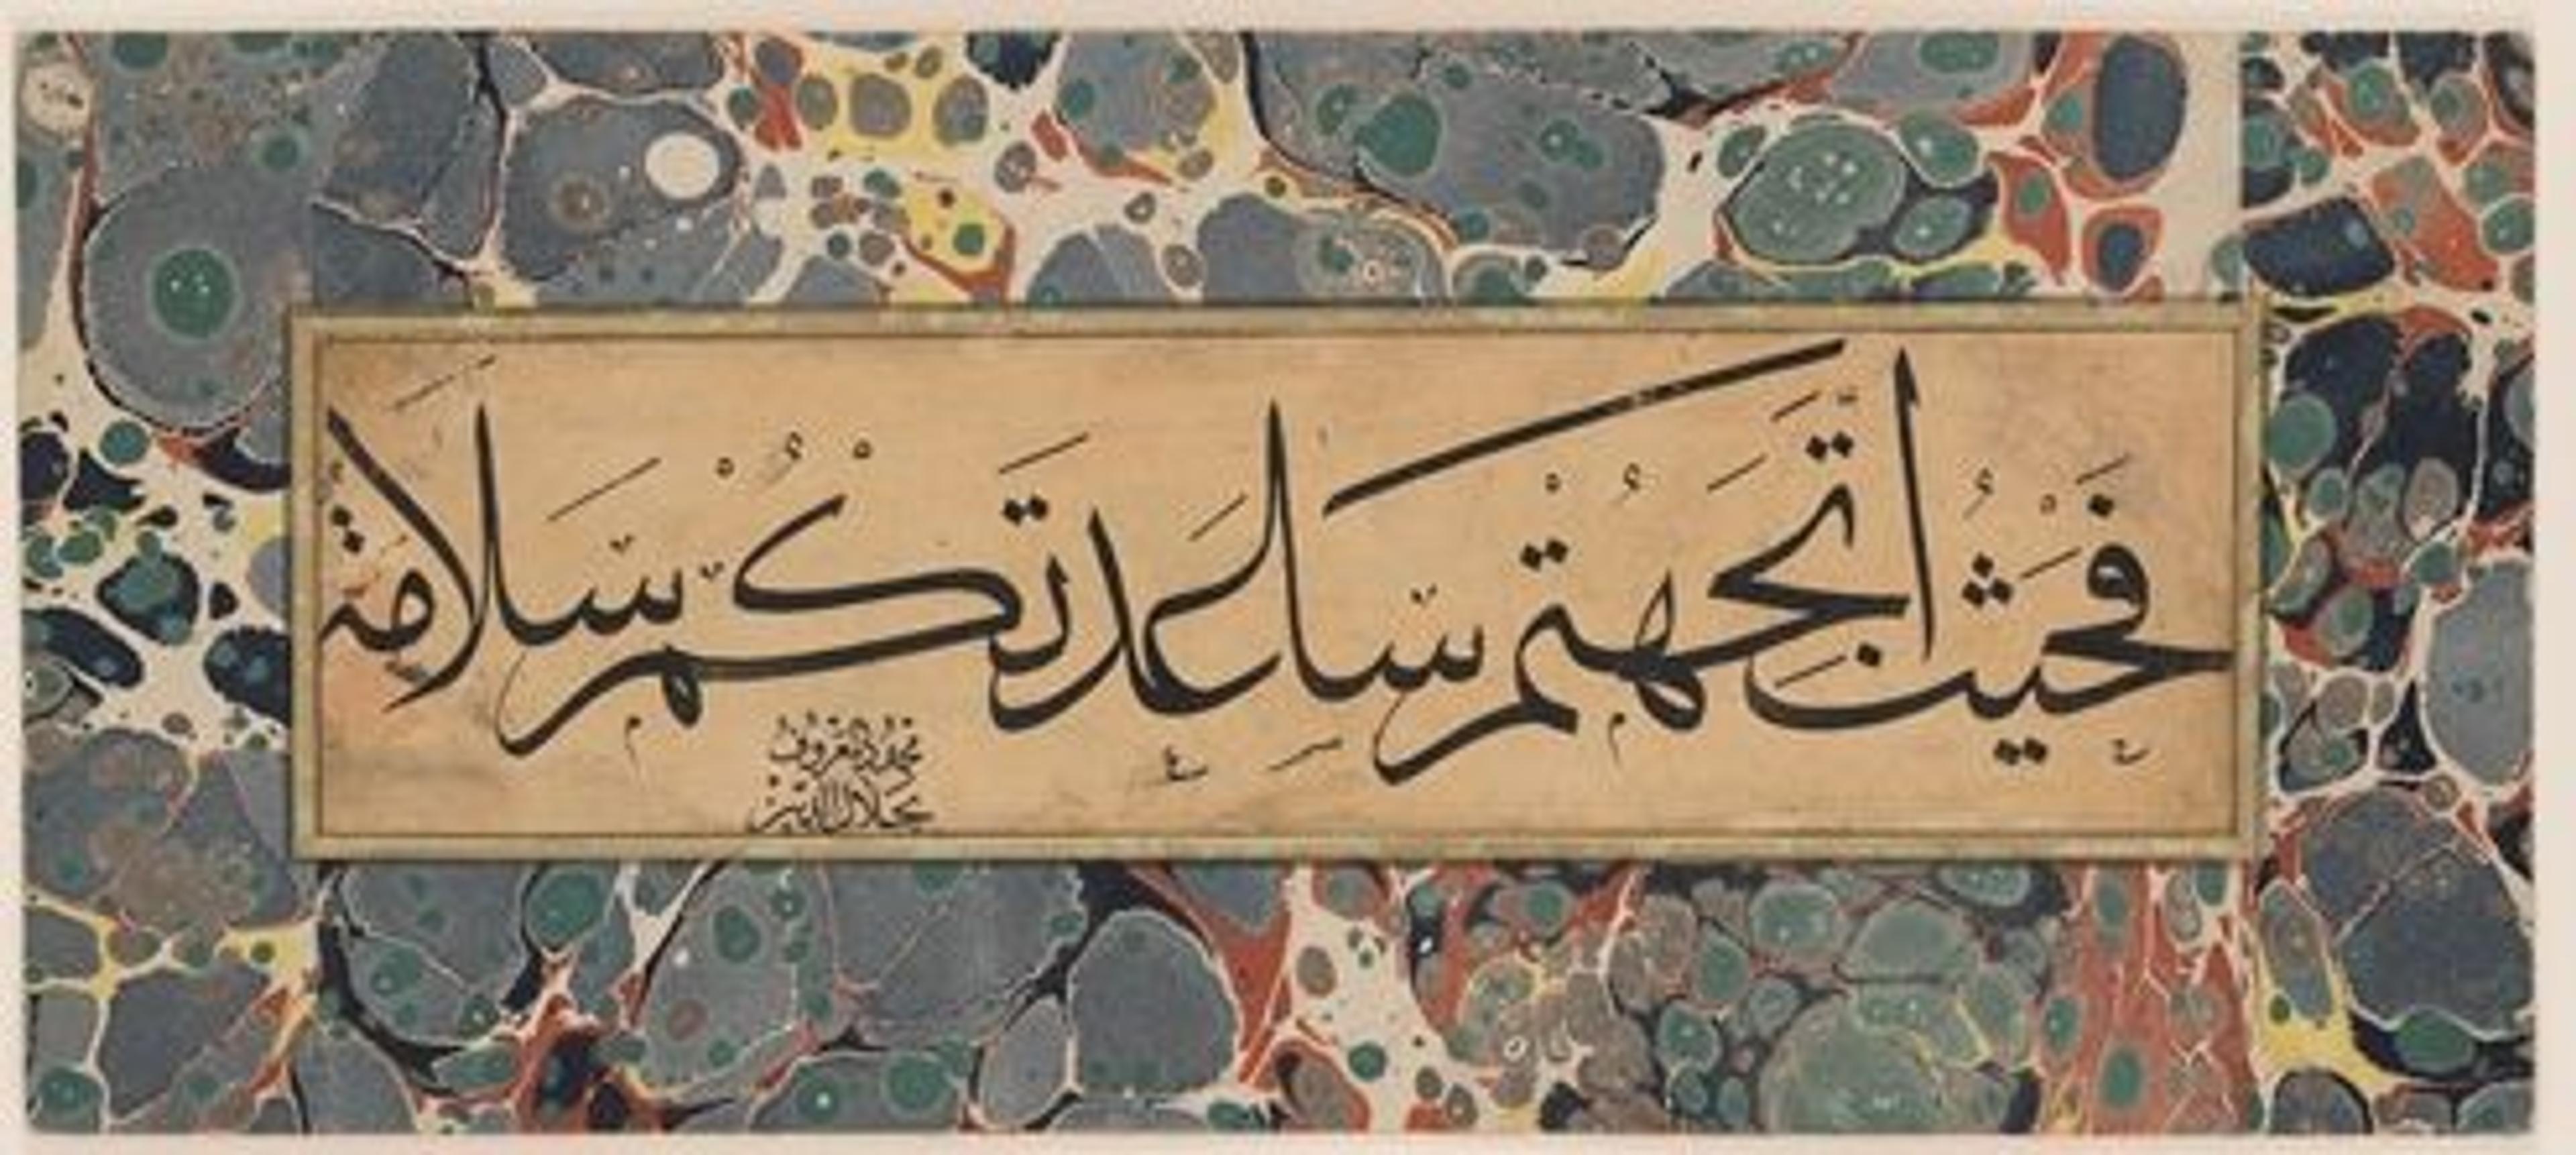 فَحَيْثُ اتَّجَهْتُمْ سَاعَدَتْكُمْ سَلَامَةٌ
محمود المعروف
بجلال الدين